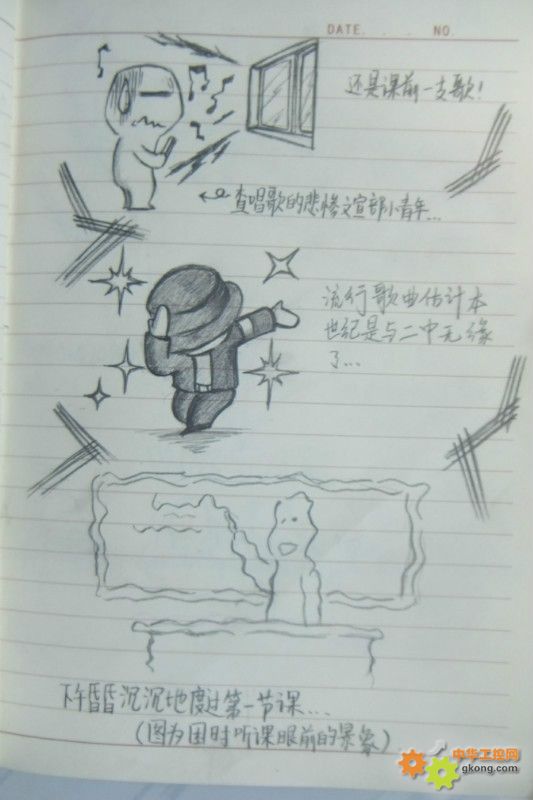 DATE. . . . NO
还是课前一支歌!
查唱歌的悲惨文宣部小青年...
流行歌曲估计本
世纪是与二中无缘
了...
下午昏昏沉沉地度过第一节课...
(图为困时听课眼前的景象)
中华工控网
gkong.com